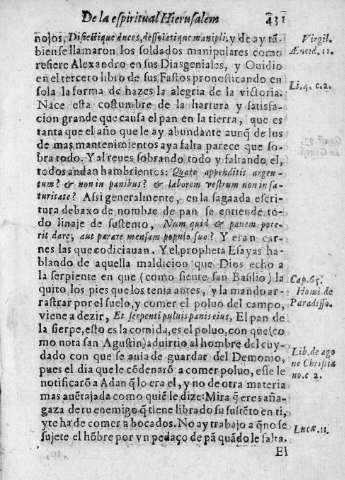 De la espiritual Hierusalem
431
nojos, Disiectique duces, desolatique manipli, y de ay tã
biense llamaron los soldados manipulares como
refiere Alexandro en sus Diasgeniales, y Ouidio
en el tercero libro de sus Fastos pronosticando en
sola la forma de hazes la alegria de la victoria.
Nace esta costumbre de la hartura y satisfa-
cion grande que causa el pan en la tierra, que es
tanta que el año que le ay abundante aunq̃ de los
de mas mantenimientos aya falta parece que so-
bra todo. Y al reues sobrando todo y faltando el,
todos andan hambrientos: Quare appenditis argen-
tum? & non in panibus? & laborem vestrum non in sa-
turitate? Assi generalmente, en la sagrada escri-
tura debaxo de nombre de pan se entiende to-
do linaje de sustento, Num quid & panem pote-
rit dare, aut parare mensam populo suo? Y eran car-
nes las que codiciauan. Y el propheta Esayas ha-
blando de aquella maldiciõ que Dios echo a
la serpiente en que (como siente san Basilio) la
quito los pies que los tenia antes, y la mandò ar-
rastrar por el suelo, y comer el poluo del campo,
viene a dezir, Et serpenti puluis panis eius, El pan de
la sierpe, esto es la comida, es el poluo, con que (co
mo nota san Agustin) aduirtio al hombre del cuy-
dado con que se auia de guardar del Demonio,
pues el dia que le cõdenarõ a comer poluo, esse le
notificarõ a Adan q̃ lo era el, y no de otra materia
mas auẽtajada como quiẽ le dize: Mira q̃ eres aña-
gaza de tu enemigo q̃ tiene librado su sustẽto en ti,
y te ha de comer a bocados. No ay trabajo a quo se
sujete el hõbre por vn pedaço de pã quãdo le falta.
El
Virgil.
Æneid. 11.
Li. 4. c. 2.
Cap. 65.
Homi. de
Paradisso.
Lib. de ago
ne Christia
no. c. 2.
Lucæ. 11.